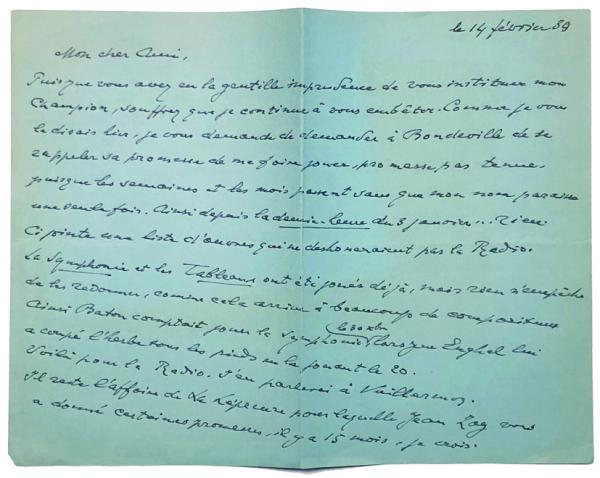 le 14 février 39
Mon cher Ami,
Puisque vous avez eu la gentille imprudence de vous instituer mon
Champion, souffrez que je continue à vous embêter. Comme je vous
le disais hier, je vous demande de demander à Bondeville de se
rappeler sa promesse de me faire jouer, promesse pas tenue,
puisque les semaines et les mois passent sans que mon nom paraisse
une seule fois. Ainsi depuis la demie-heure du 3 janvier... Rien
Ci jointe une liste d'œuvres qui ne déshoneraient pas la Radio.
La Symphonie et les Tableaux ont été joués déjà, mais rien n'empêche
de les redonner, comme cela arrive à beaucoup de compositeurs
Ainsi Baton comptait jouer la Symphonie le 30 xbre lorsque Enghel lui
a coupé l'herbe sous les pieds en la jouant le 20.
Voilà pour la Radio. J'en parlerai à Vuillermoz.
Il reste l'affaire de La pour laquelle Jean Zay vous
a donné certaines promesses, il y a 15 mois, je crois.